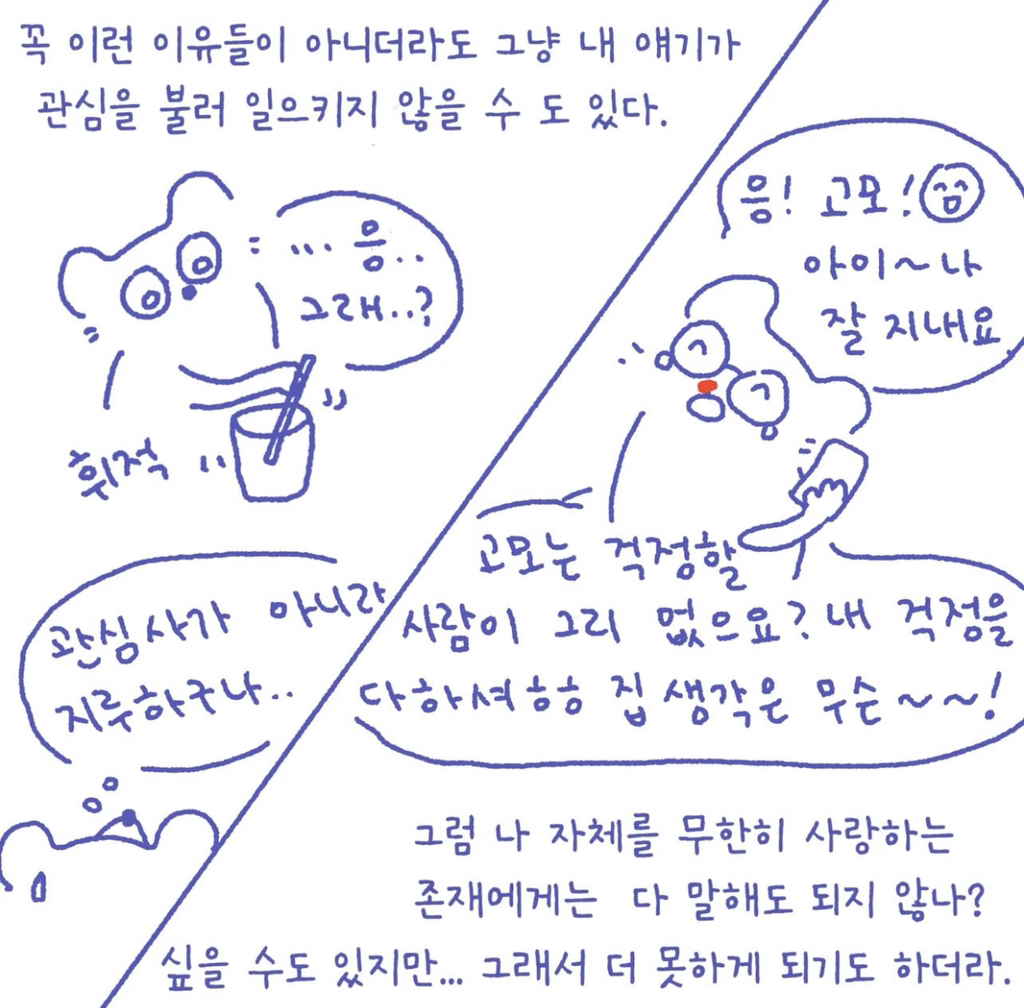 꼭 이런 이유들이 아니더라도 그냥 내 얘기가
관심을 불러 일으키지 않을 수 도 있다.
... 응..
그래..?
휘적
관심사가 아니라
지루하구나..
응! 고모!
아이~나
잘 지내요
고모는 걱정할
사람이 그리 없으요? 내 걱정을
다하셔흐흐 집 생각은 무슨~~!
그럼 나 자체를 무한히 사랑하는
존재에게는 다 말해도 되지 않나?
싶을 수도 있지만... 그래서 더 못하게 되기도 하더라.